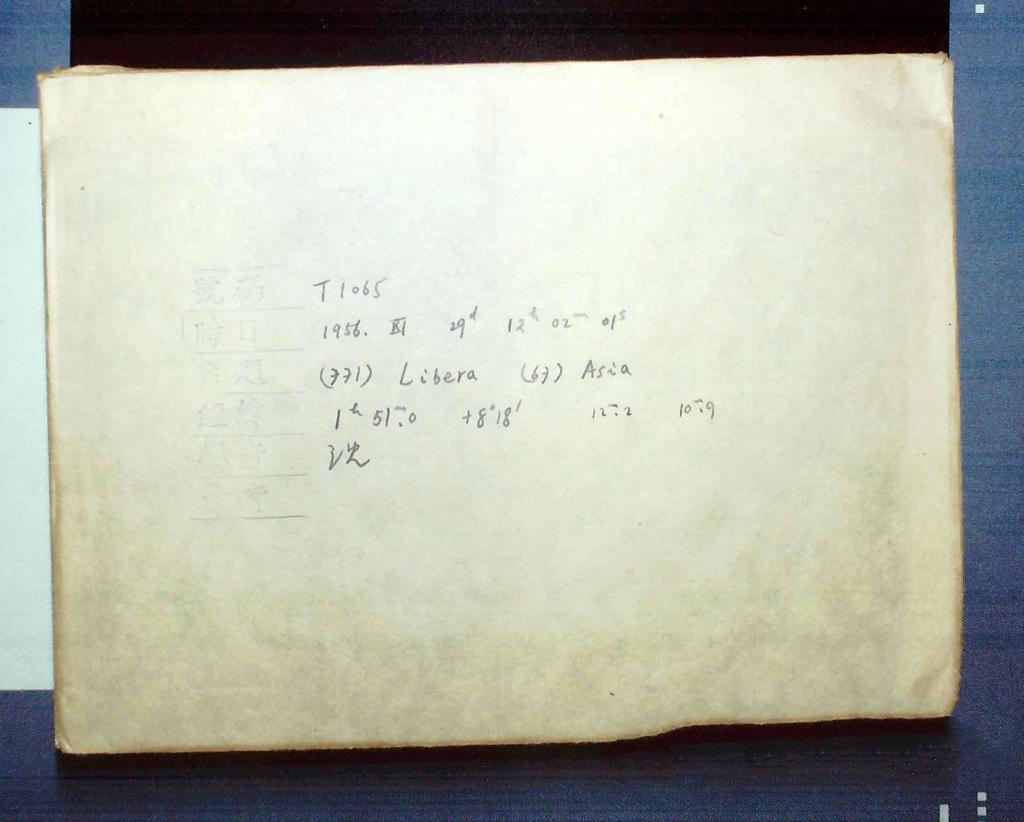 號碼 T1065
時日 1956. XI 29ᵈ 12ʰ 02ᵐ 01ˢ
題 (771) Libera (67) Asia
經緯 1ʰ 51ᵐ.0 +8°18′ 12ᵐ.2 10ᵐ.9
沈